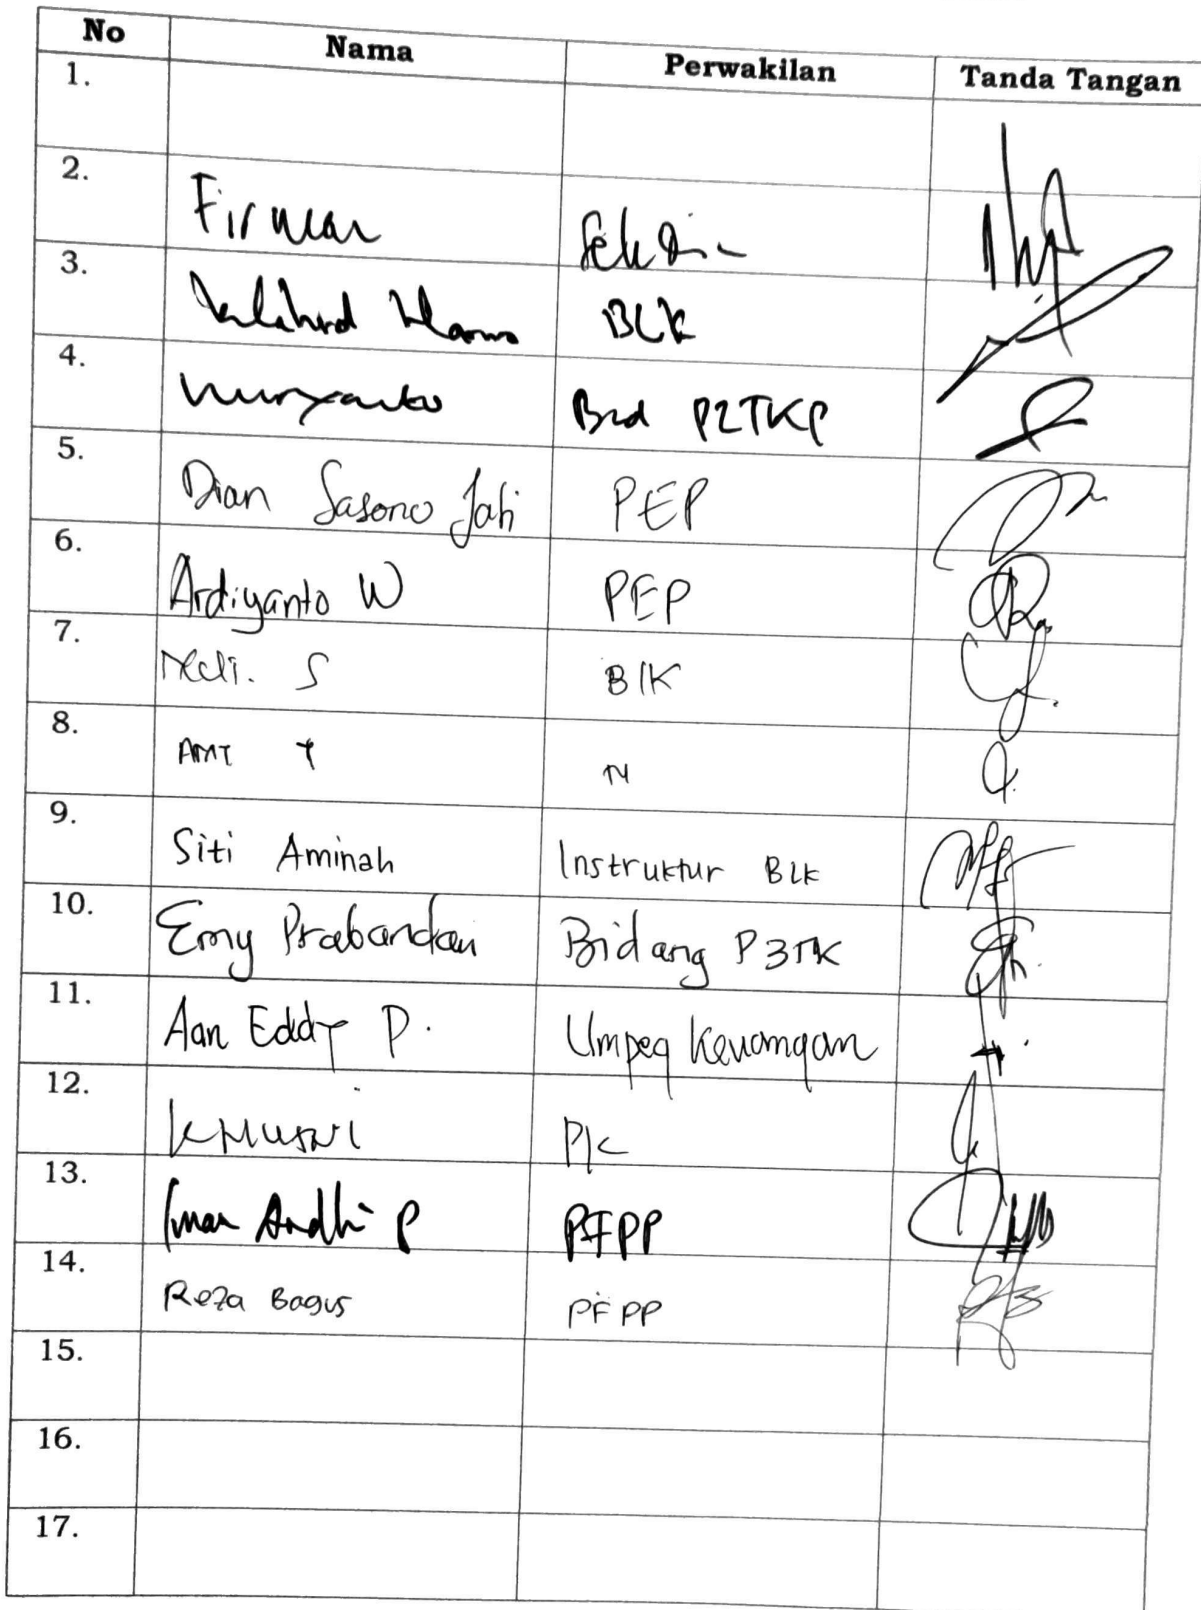 No Nama Perwakilan Tanda Tangan
1.
2. Firman
3. BLK
4. Nuryanto Bid P2TKP
5. Dian Sasono Jati PEP
6. Ardiyanto W PEP
7. S BLK
8.
9. Siti Aminah Instruktur BLK
10. Emy Prabandari Bidang P3TK
11. Aan Eddy P. Umpeg Keuangan
12. KHUSNI PK
13. Andhi P PFPP
14. Reza Bagus PFPP
15.
16.
17.